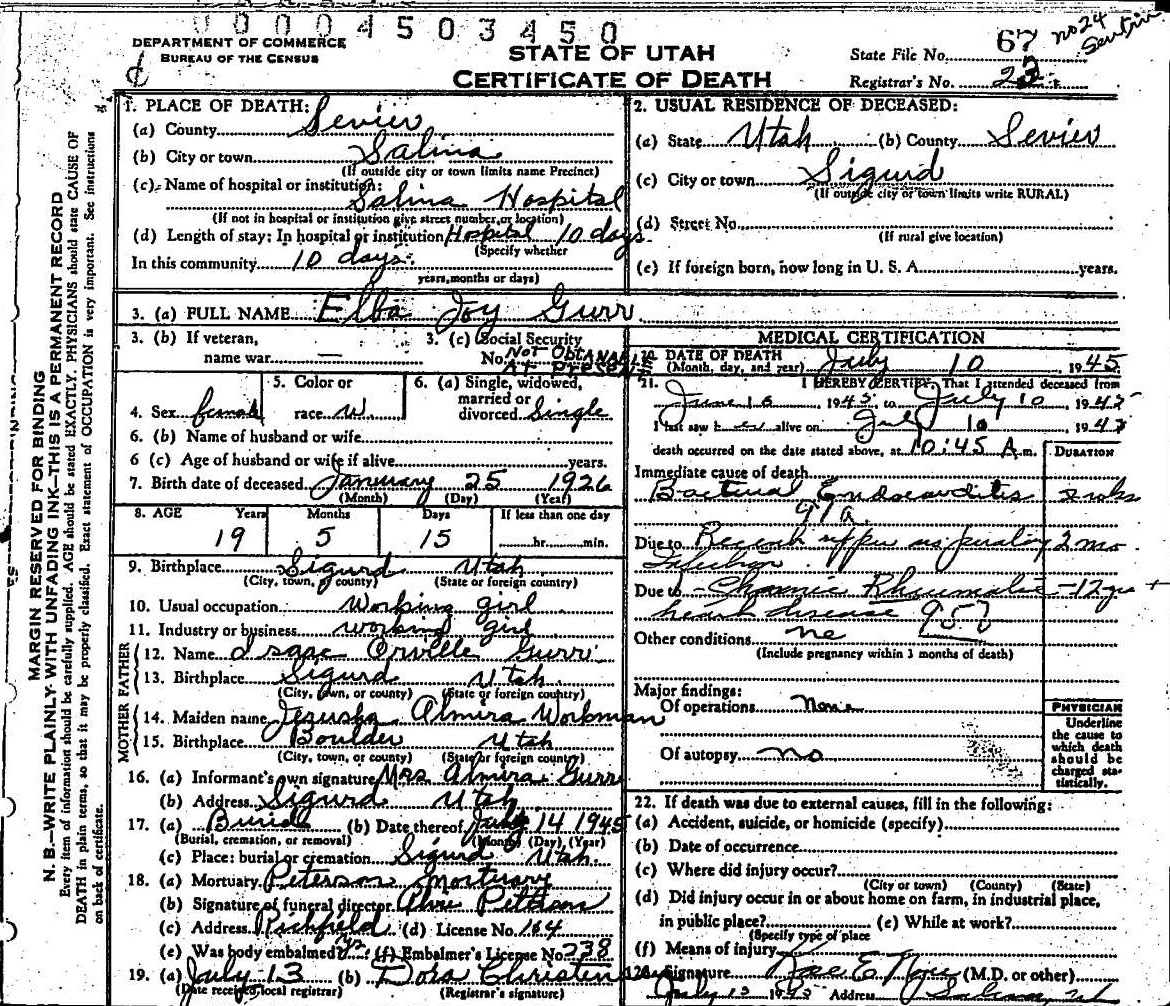 0 0 0 4 5 0 3 4 5 0
DEPARTMENT OF COMMERCE
BUREAU OF THE CENSUS
STATE OF UTAH
CERTIFICATE OF DEATH
State File No. 67
no 24
Registrar's No. 22
MARGIN RESERVED FOR BINDING
N. B.—WRITE PLAINLY WITH UNFADING INK—THIS IS A PERMANENT RECORD
Every item of information should be carefully supplied. AGE should be stated EXACTLY. PHYSICIANS should state CAUSE OF
DEATH in plain terms, so that it may be properly classified. Exact statement of OCCUPATION is very important. See instructions
on back of certificate.
1. PLACE OF DEATH:
(a) County Sevier
(b) City or town Salina
(If outside city or town limits name Precinct)
(c) Name of hospital or institution:
Salina Hospital
(If not in hospital or institution give street number or location)
(d) Length of stay: In hospital or institution Hospital 10 days
(Specify whether
In this community 10 days
years, months or days)
2. USUAL RESIDENCE OF DECEASED:
(a) State Utah (b) County Sevier
(c) City or town Sigurd
(If outside city or town limits write RURAL)
(d) Street No.
(If rural give location)
(e) If foreign born, how long in U. S. A. years.
3. (a) FULL NAME Elba Joy Gurr
3. (b) If veteran,
name war —
3. (c) Social Security
No. Not Obtainable
At Present
4. Sex female
5. Color or
race W.
6. (a) Single, widowed,
married or
divorced Single
6. (b) Name of husband or wife
6 (c) Age of husband or wife if alive years.
7. Birth date of deceased January 25 1926
(Month) (Day) (Year)
8. AGE Years Months Days If less than one day
19 5 15 hr. min.
9. Birthplace Sigurd Utah
(City, town, or county) (State or foreign country)
10. Usual occupation Working girl
11. Industry or business working girl
FATHER
12. Name Isaac Orville Gurr
13. Birthplace Sigurd Utah
(City, town, or county) (State or foreign country)
MOTHER
14. Maiden name Jerusha Almira Workman
15. Birthplace Boulder Utah
(City, town, or county) (State or foreign country)
16. (a) Informant's own signature Mrs Almira Gurr
(b) Address Sigurd Utah
17. (a) Burial (b) Date thereof July 14 1945
(Burial, cremation, or removal) (Month) (Day) (Year)
(c) Place: burial or cremation Sigurd Utah
18. (a) Mortuary Peterson Mortuary
(b) Signature of funeral director
(c) Address Richfield (d) License No. 164
(e) Was body embalmed? yes (f) Embalmer's License No. 238
19. (a) July 13 (b) Dora Christen
(Date received local registrar) (Registrar's signature)
MEDICAL CERTIFICATION
20. DATE OF DEATH
(Month, day, and year) July 10, 1945.
21. I HEREBY CERTIFY, That I attended deceased from
June 16 1945 to July 10, 1945
I last saw h er alive on July 10, 1945
death occurred on the date stated above, at 10:45 A.m.
DURATION
Immediate cause of death
Bacterial Endocarditis
97a
Due to Recent upper respiratory 2 mo
Infection
Due to Chronic Rheumatic
heart disease
Other conditions
(Include pregnancy within 3 months of death)
Major findings:
Of operations None
Of autopsy no
PHYSICIAN
Underline
the cause to
which death
should be
charged sta-
tistically.
22. If death was due to external causes, fill in the following:
(a) Accident, suicide, or homicide (specify)
(b) Date of occurrence
(c) Where did injury occur?
(City or town) (County) (State)
(d) Did injury occur in or about home on farm, in industrial place,
in public place? (e) While at work?
(Specify type of place
(f) Means of injury
Signature Rae E. (M.D. or other)
July 13 1945 Address